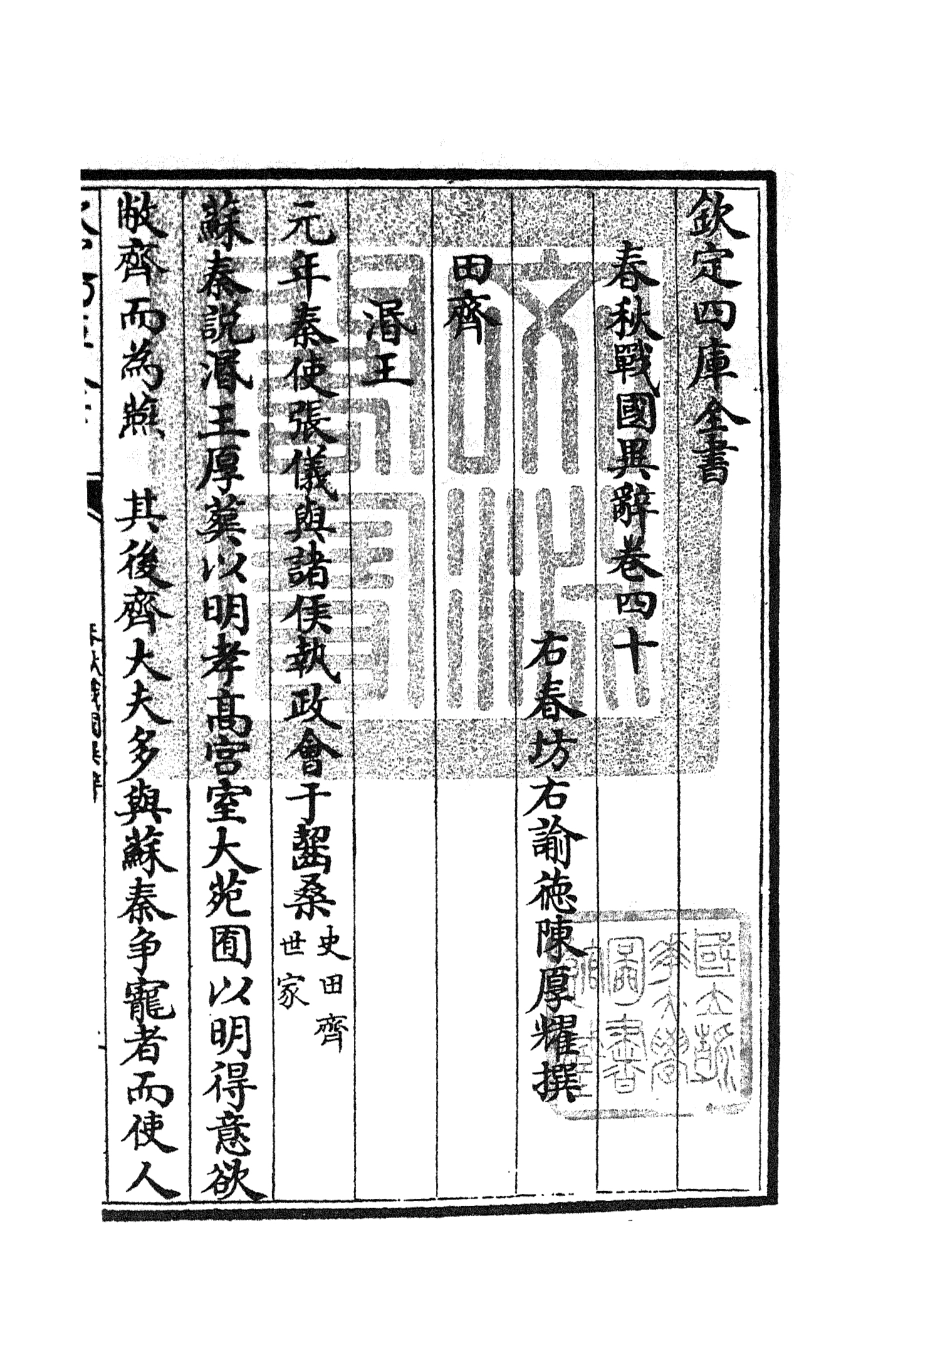 欽定四庫全書
春秋戰國異辭卷四十
右春坊右諭德陳厚耀撰
田齊
湣王
元年秦使張儀與諸侯執政會于齧桑史田齊世家
蘇秦說湣王厚葬以明孝高宮室大苑囿以明得意欲
敝齊而為燕　其後齊大夫多與蘇秦争寵者而使人
春秋戰國異辭